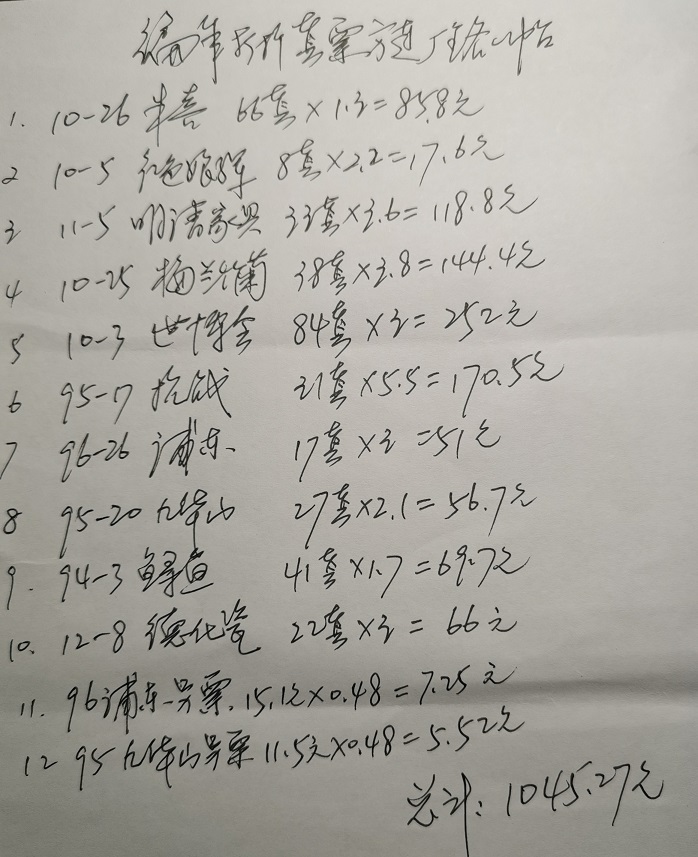 编年打折套票方连厂铭
1. 10-26 朱熹 66套×1.3=85.8元
2 10-5 红色娘子军 8套×2.2=17.6元
3 11-5 明清家具 33套×3.6=118.8元
4 10-25 梅兰竹菊 38套×3.8=144.4元
5 10-3 世博会 84套×3=252元
6 95-17 抗战 31套×5.5=170.5元
7 96-26 浦东 17套×3=51元
8 95-20 九华山 27套×2.1=56.7元
9. 94-3 鲟鱼 41套×1.7=69.7元
10. 12-8 德化瓷 22套×3=66元
11. 96浦东异票.15.1元×0.48=7.25元
12 95九华山异票 11.5元×0.48=5.52元
总计:1045.27元